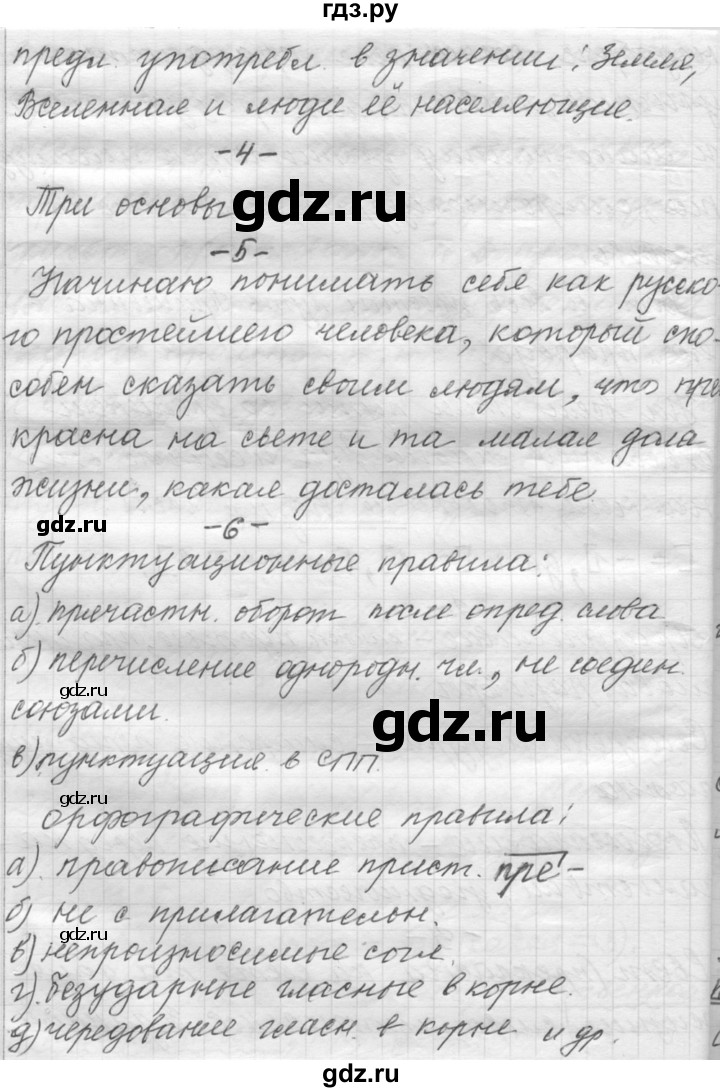 гдз.ру
предл. употребл. в значении: Земля,
Вселенная и люди её населяющие.
-4-
Три основы
gdz.ru
-5-
Начинаю понимать себя как русско-
го простейшего человека, который спо-
собен сказать своим людям, что пре
красна на свете и та малая доля
жизни, какая досталась тебе.
gdz.ru
-6-
Пунктуационные правила:
а) причастн. оборот после опред. слова
б) перечисление однородн. чл., не соедин.
gdz.ru
союзами.
gdz.ru
в) пунктуация в СПП.
gdz.ru
орфографические правила:
а). правописание прист. пре-
б) не с прилагательн.
gdz.ru
в) непроизносимые согл.
г). безударные гласные в корне.
д) чередование гласн. в корне и др.
gdz.ru